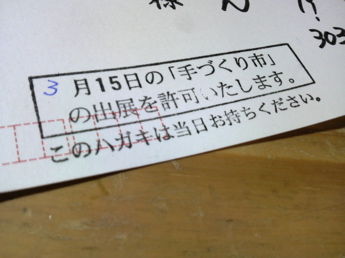 様
303
3月15日の「手づくり市」
の出展を許可いたします。
このハガキは当日お持ちください。